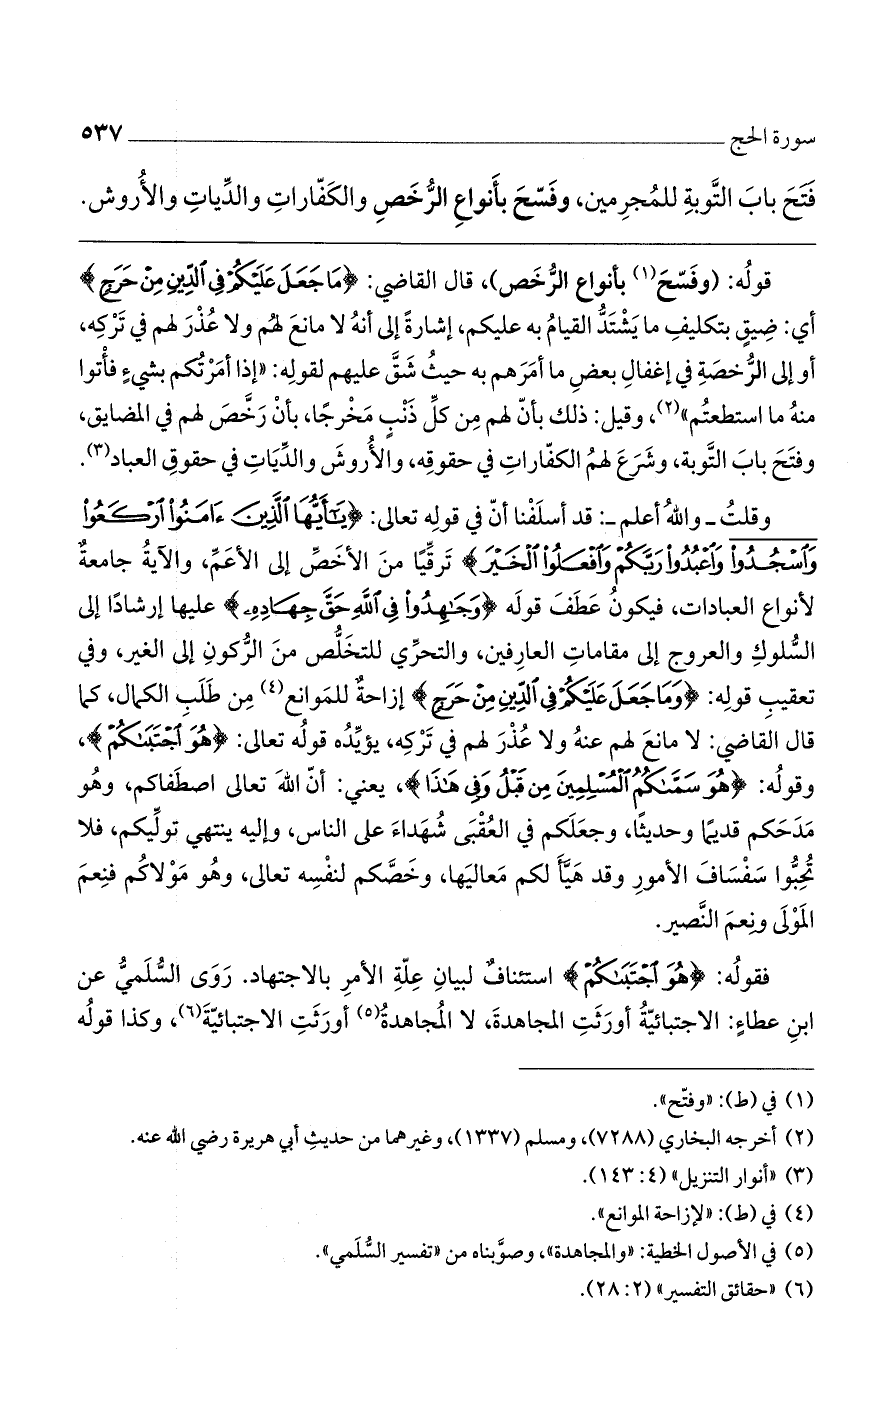 سورة الحج ٥٣٧
فَتَحَ بابَ التَّوبةِ للمُجرِمين، وفَسّحَ بأَنواعِ الرُّخَصِ والكَفّاراتِ والدِّياتِ والأُروش.
قولُه: (وفَسّحَ(١) بأنواع الرُّخَص)، قال القاضي: ﴿مَا جَعَلَ عَلَيْكُمْ فِي ٱلدِّينِ مِنْ حَرَجٍ﴾
أي: ضِيقٍ بتكليفِ ما يَشْتَدُّ القيامُ به عليكم، إشارةً إلى أنهُ لا مانعَ لهُم ولا عُذْرَ لهم في تَرْكِه،
أو إلى الرُّخصَةِ في إغفالِ بعضِ ما أمَرَهم به حيثُ شَقَّ عليهم لقولِه: «إذا أمَرْتُكم بشيءٍ فأْتوا
منهُ ما استطعتُم»(٢)، وقيل: ذلك بأنّ لهم مِن كلِّ ذَنْبٍ مَخْرجًا، بأنْ رَخَّصَ لهم في المضايق،
وفتَحَ بابَ التَّوبة، وشَرَعَ لهمُ الكفّاراتِ في حقوقِه، والأُروشَ والدِّيَاتِ في حقوقِ العباد(٣).
وقلتُ ـ واللهُ أعلم ـ: قد أسلَفْنا أنّ في قولِه تعالى: ﴿يَـٰٓأَيُّهَا ٱلَّذِينَ ءَامَنُوا۟ ٱرْكَعُوا۟
وَٱسْجُدُوا۟ وَٱعْبُدُوا۟ رَبَّكُمْ وَٱفْعَلُوا۟ ٱلْخَيْرَ﴾ تَرقّيًا منَ الأخصِّ إلى الأعَمِّ، والآيةُ جامعةٌ
لأنواع العبادات، فيكونُ عَطَفَ قولَه ﴿وَجَـٰهِدُوا۟ فِي ٱللَّهِ حَقَّ جِهَادِهِۦ﴾ عليها إرشادًا إلى
السُّلوكِ والعروج إلى مقاماتِ العارفين، والتحرِّي للتخلُّص منَ الرُّكونِ إلى الغير، وفي
تعقيبِ قولِه: ﴿وَمَا جَعَلَ عَلَيْكُمْ فِي ٱلدِّينِ مِنْ حَرَجٍ﴾ إزاحةٌ للمَوانع(٤) مِن طَلَبِ الكمال، كما
قال القاضي: لا مانعَ لهم عنهُ ولا عُذْرَ لهم في تَرْكِه، يؤيِّدُه قولُه تعالى: ﴿هُوَ ٱجْتَبَىٰكُمْ﴾،
وقولُه: ﴿هُوَ سَمَّىٰكُمُ ٱلْمُسْلِمِينَ مِن قَبْلُ وَفِي هَـٰذَا﴾، يعني: أنّ اللهَ تعالى اصطَفاكم، وهُو
مَدَحَكم قديمًا وحديثًا، وجعَلَكم في العُقْبَى شُهَداءَ على الناس، وإليه ينتهي تولِّيكم، فلا
تُحِبُّوا سَفْسَافَ الأمورِ وقد هَيَّأَ لكم مَعاليَها، وخَصَّكم لنفْسِه تعالى، وهُو مَوْلاكُم فنِعمَ
المَوْلَى ونِعمَ النَّصير.
فقولُه: ﴿هُوَ ٱجْتَبَىٰكُمْ﴾ استئنافٌ لبيانِ عِلّةِ الأمرِ بالاجتهاد. رَوَى السُّلَميُّ عن
ابنِ عطاءٍ: الاجتبائيّةُ أورَثَتِ المجاهدةَ، لا المُجاهدةُ(٥) أورَثَتِ الاجتبائيّةَ(٦)، وكذا قولُه
(١) في (ط): «وفتّح».
(٢) أخرجه البخاري (٧٢٨٨)، ومسلم (١٣٣٧)، وغيرهما من حديثِ أبي هريرة رضي الله عنه.
(٣) «أنوار التنزيل» (٤: ١٤٣).
(٤) في (ط): «لإزاحة الموانع».
(٥) في الأصول الخطية: «والمجاهدة»، وصوَّبناه من «تفسير السُّلَمي».
(٦) «حقائق التفسير» (٢: ٢٨).